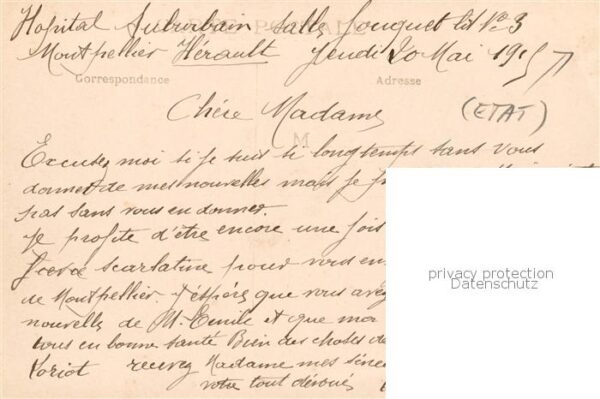 Hopital Suburbain Salle Fouquet lit No 3
Montpellier Hérault Jeudi 20 Mai 1915
CARTE POSTALE
Correspondance
Adresse
(ETAT)
Chére Madame
M
Excusez moi si je suis si longtemps sans vous
donner de mes nouvelles mais je
pas sans vous en donner.
Je profite d'être encore une fois
scarlatine pour vous en
de Montpellier. J'éspére que vous avez
nouvelle de M. Emile et que
tous en bonne santé Bien des choses de
Loriot recevez Madame mes
votre tout dévoués
privacy protection
Datenschutz